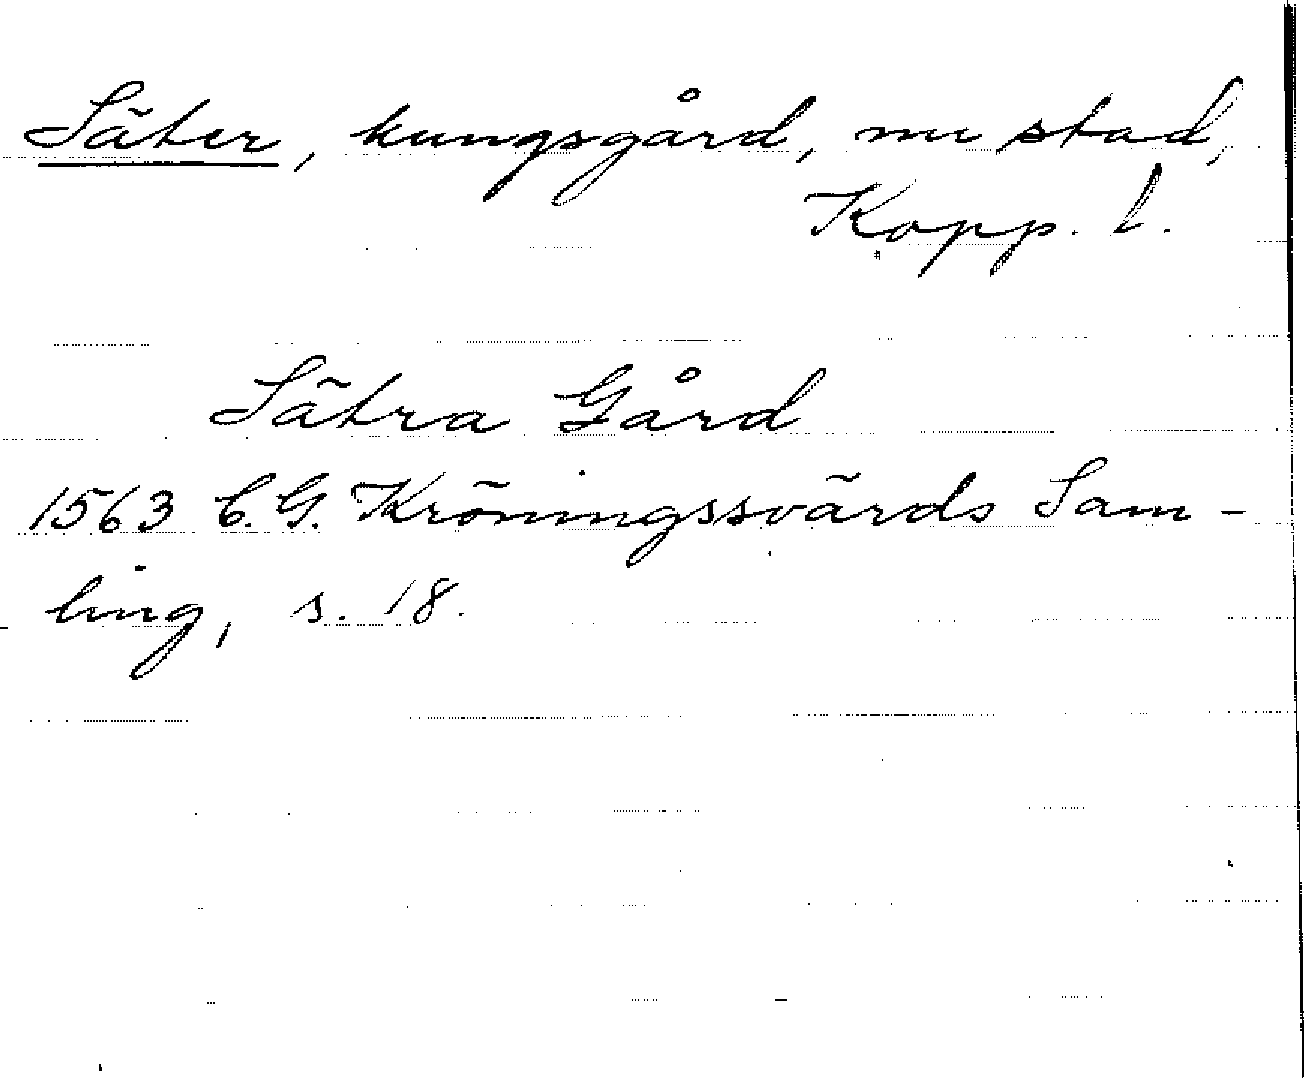 Säter, kungsgård, nu stad,
Kopp. l.
Sätra Gård
1563 C. G. Kröningssvärds Sam-
ling, s. 18.